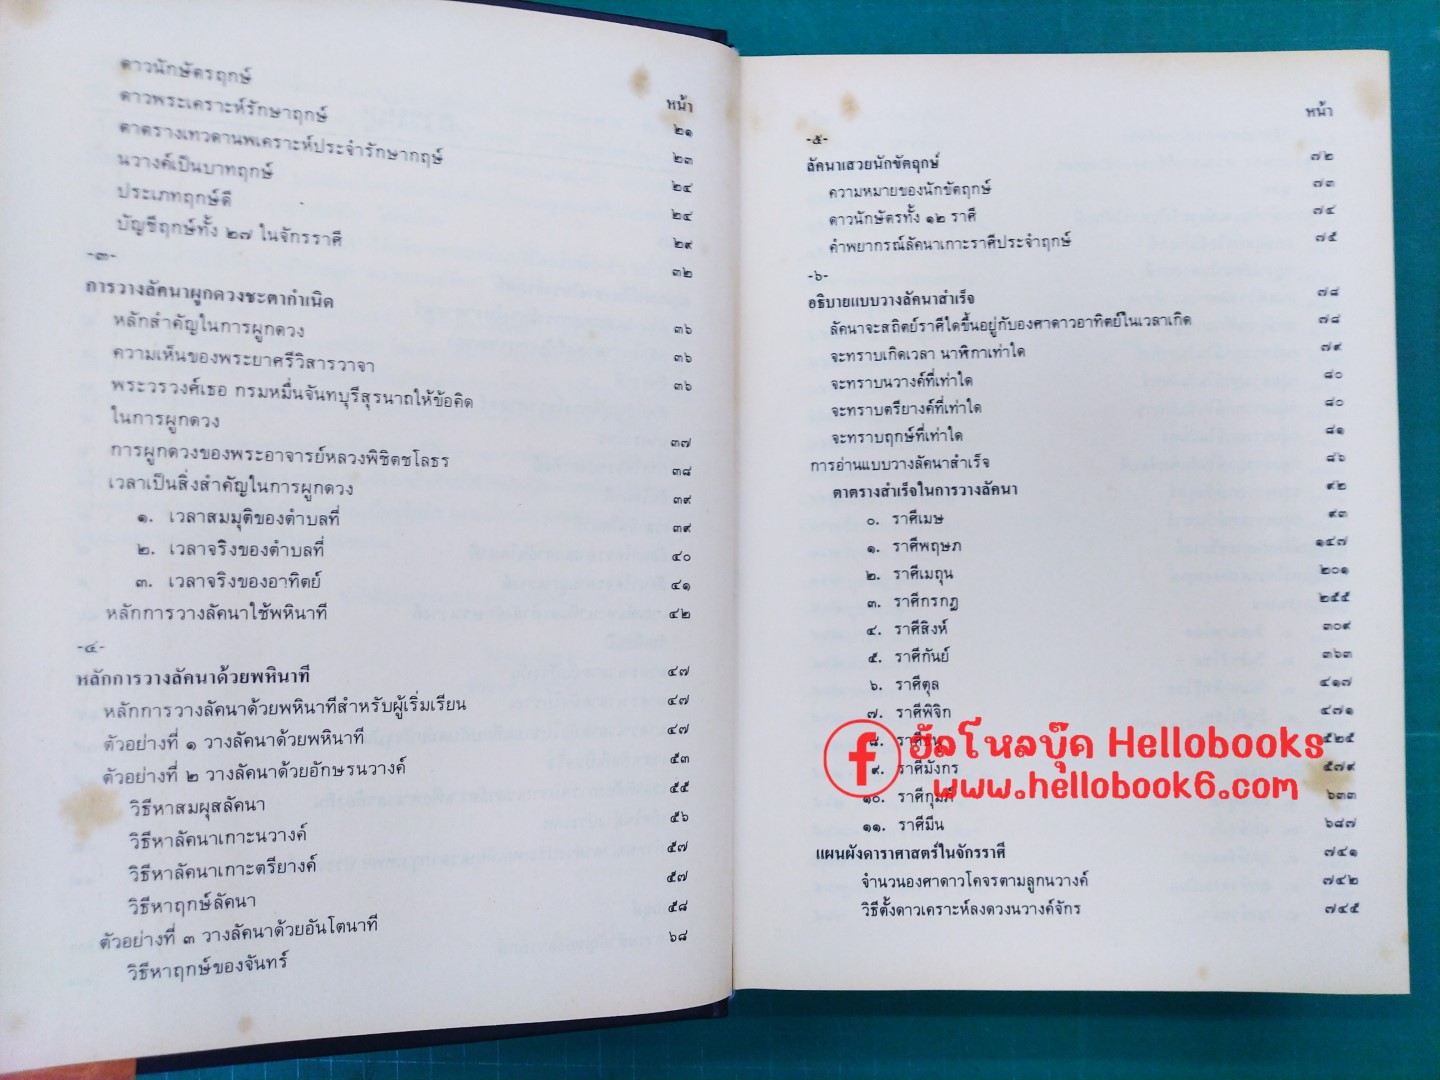 หน้า
ดาวนักษัตรฤกษ์ ๒๑
ดาวพระเคราะห์รักษาฤกษ์ ๒๓
ตาตรางเทวดานพเคราะห์ประจำรักษากฤษ์ ๒๔
นวางค์เป็นบาทฤกษ์ ๒๔
ประเภทฤกษ์ดี ๒๙
บัญชีฤกษ์ทั้ง ๒๗ ในจักรราศี ๓๒
-๓-
การวางลัคนาผูกดวงชะตากำเนิด ๓๖
หลักสำคัญในการผูกดวง ๓๖
ความเห็นของพระยาศรีวิสารวาจา ๓๖
พระวรวงศ์เธอ กรมหมื่นจันทบุรีสุรนาถให้ข้อคิด
ในการผูกดวง ๓๗
การผูกดวงของพระอาจารย์หลวงพิชิตชโลธร ๓๘
เวลาเป็นสิ่งสำคัญในการผูกดวง ๓๙
๑. เวลาสมมุติของตำบลที่ ๓๙
๒. เวลาจริงของตำบลที่ ๔๐
๓. เวลาจริงของอาทิตย์ ๔๑
หลักการวางลัคนาใช้พหินาที ๔๒
-๔-
หลักการวางลัคนาด้วยพหินาที ๔๗
หลักการวางลัคนาด้วยพหินาทีสำหรับผู้เริ่มเรียน ๔๗
ตัวอย่างที่ ๑ วางลัคนาด้วยพหินาที ๔๗
ตัวอย่างที่ ๒ วางลัคนาด้วยอักษรนวางค์ ๕๓
วิธีหาสมผุสลัคนา ๕๕
วิธีหาลัคนาเกาะนวางค์ ๕๖
วิธีหาลัคนาเกาะตรียางค์ ๕๗
วิธีหาฤกษ์ลัคนา ๕๗
ตัวอย่างที่ ๓ วางลัคนาด้วยอันโตนาที ๕๘
วิธีหาฤกษ์ของจันทร์ ๖๘
หน้า
-๕-
ลัคนาเสวยนักขัตฤกษ์ ๗๒
ความหมายของนักขัตฤกษ์ ๗๓
ดาวนักษัตรทั้ง ๑๒ ราศี ๗๔
คำพยากรณ์ลัคนาเกาะราศีประจำฤกษ์ ๗๕
-๖-
อธิบายแบบวางลัคนาสำเร็จ ๗๘
ลัคนาจะสถิตย์ราศีใดขึ้นอยู่กับองศาดาวอาทิตย์ในเวลาเกิด ๗๘
จะทราบเกิดเวลา นาฬิกาเท่าใด ๗๙
จะทราบนวางค์ที่เท่าใด ๘๐
จะทราบตรียางค์ที่เท่าใด ๘๐
จะทราบฤกษ์ที่เท่าใด ๘๑
การอ่านแบบวางลัคนาสำเร็จ ๘๖
ตาตรางสำเร็จในการวางลัคนา ๙๒
๐. ราศีเมษ ๙๓
๑. ราศีพฤษภ ๑๔๗
๒. ราศีเมถุน ๒๐๑
๓. ราศีกรกฎ ๒๕๕
๔. ราศีสิงห์ ๓๐๙
๕. ราศีกันย์ ๓๖๓
๖. ราศีตุล ๔๑๗
๗. ราศีพิจิก ๔๗๑
๘. ราศีธนู ๕๒๕
๙. ราศีมังกร ๕๗๙
๑๐. ราศีกุมภ์ ๖๓๓
๑๑. ราศีมีน ๖๘๗
แผนผังดาราศาสตร์ในจักรราศี ๗๔๑
จำนวนองศาดาวโคจรตามลูกนวางค์ ๗๔๒
วิธีตั้งดาวเคราะห์ลงดวงนวางค์จักร ๗๔๕
ฮัลโหลบุ๊ค Hellobooks
www.hellobook6.com